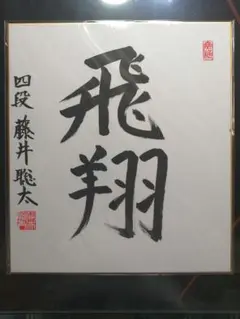 飛翔
四段 藤井聡太